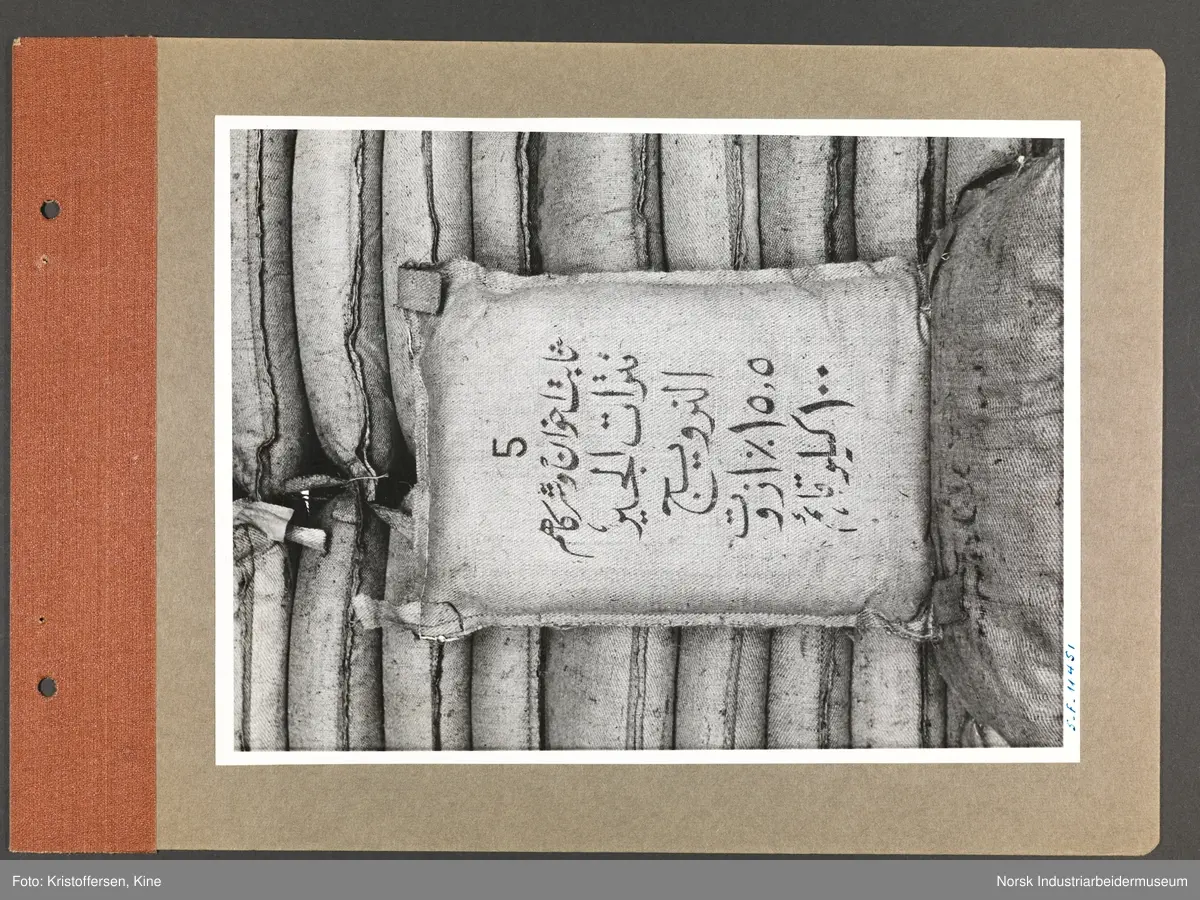 5
ثابت اخوان وشركاهم
نترات الجير
النرويج
١٥٫٥٪ ازوت
١٠٠ كيلو قائم
S.F. 11451
Foto: Kristoffersen, Kine
Norsk Industriarbeidermuseum